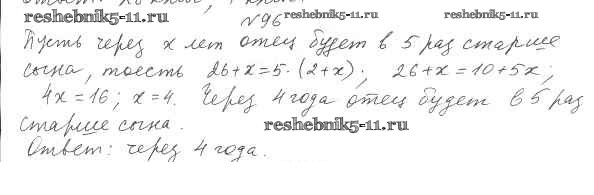 reshebnik5-11.ru №96 reshebnik5-11.ru
Пусть через x лет отец будет в 5 раз старше
сына, тоесть 26+x=5·(2+x); 26+x=10+5x;
4x=16; x=4. Через 4 года отец будет в 5 раз
старше сына. reshebnik5-11.ru
Ответ: через 4 года.